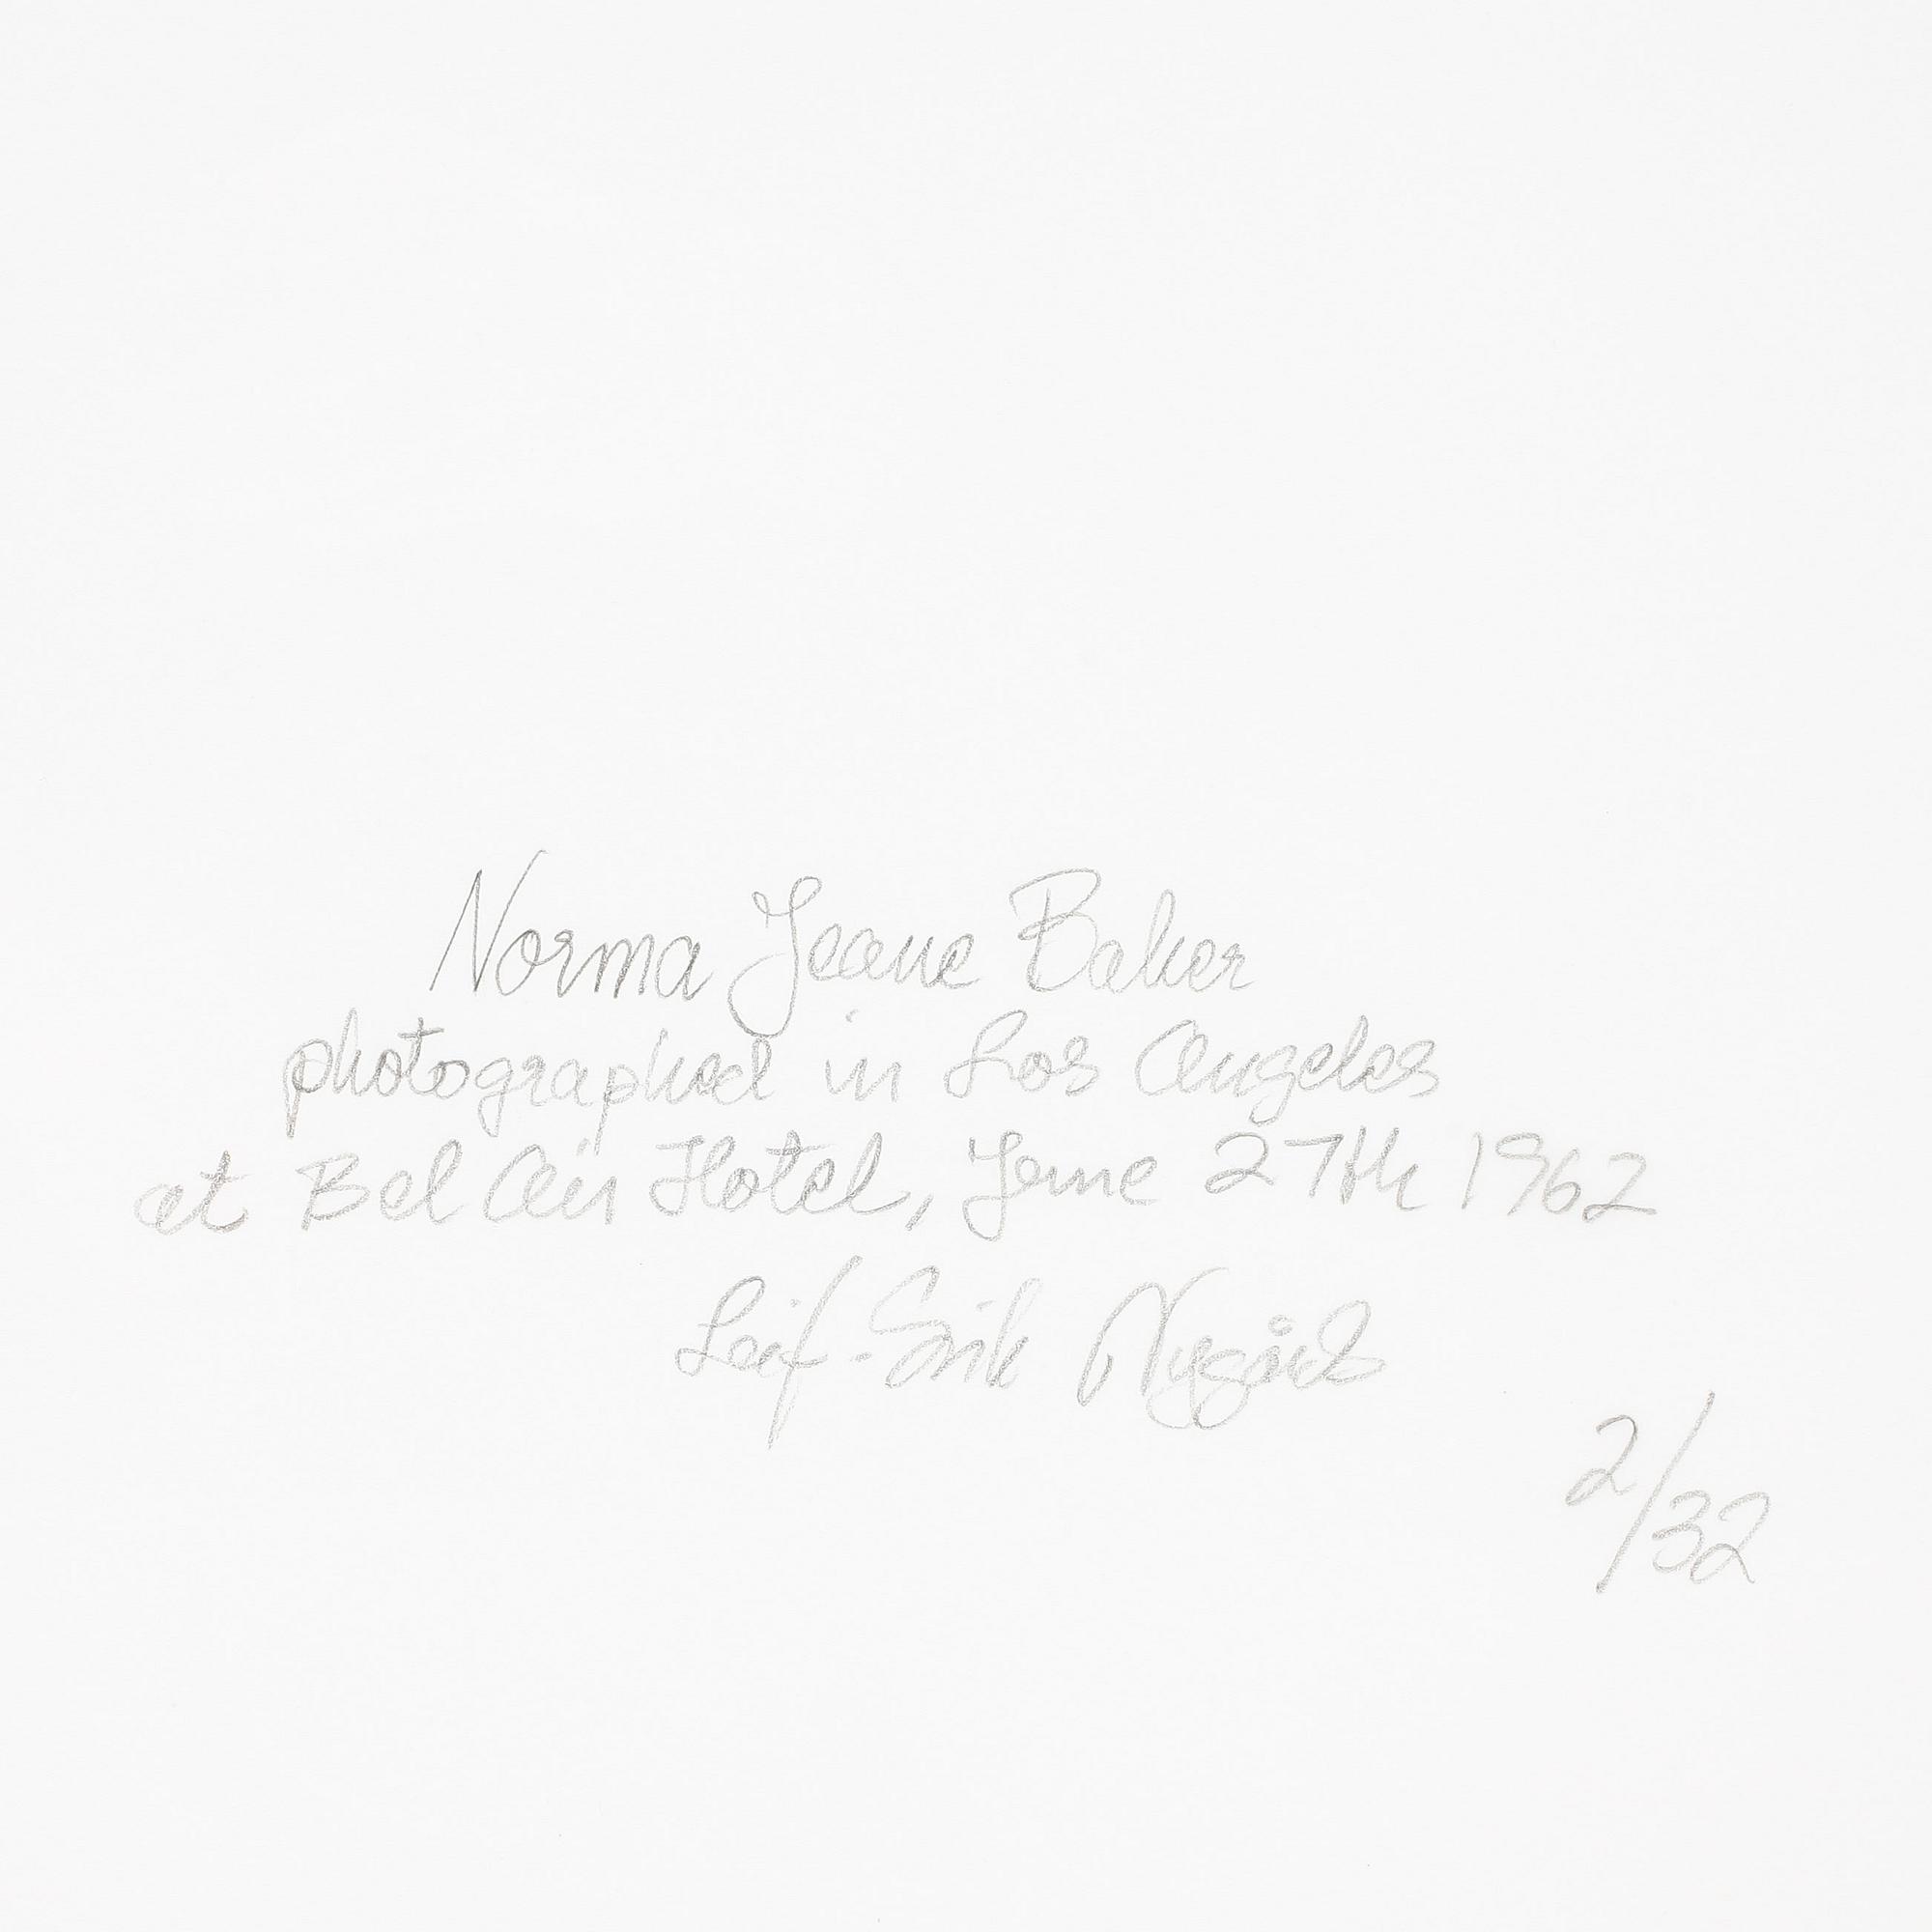 Norma Jeane Baker
photographed in Los Angeles
at Bel Air Hotel, June 27th 1962
Leif-Erik Nygårds
2/32